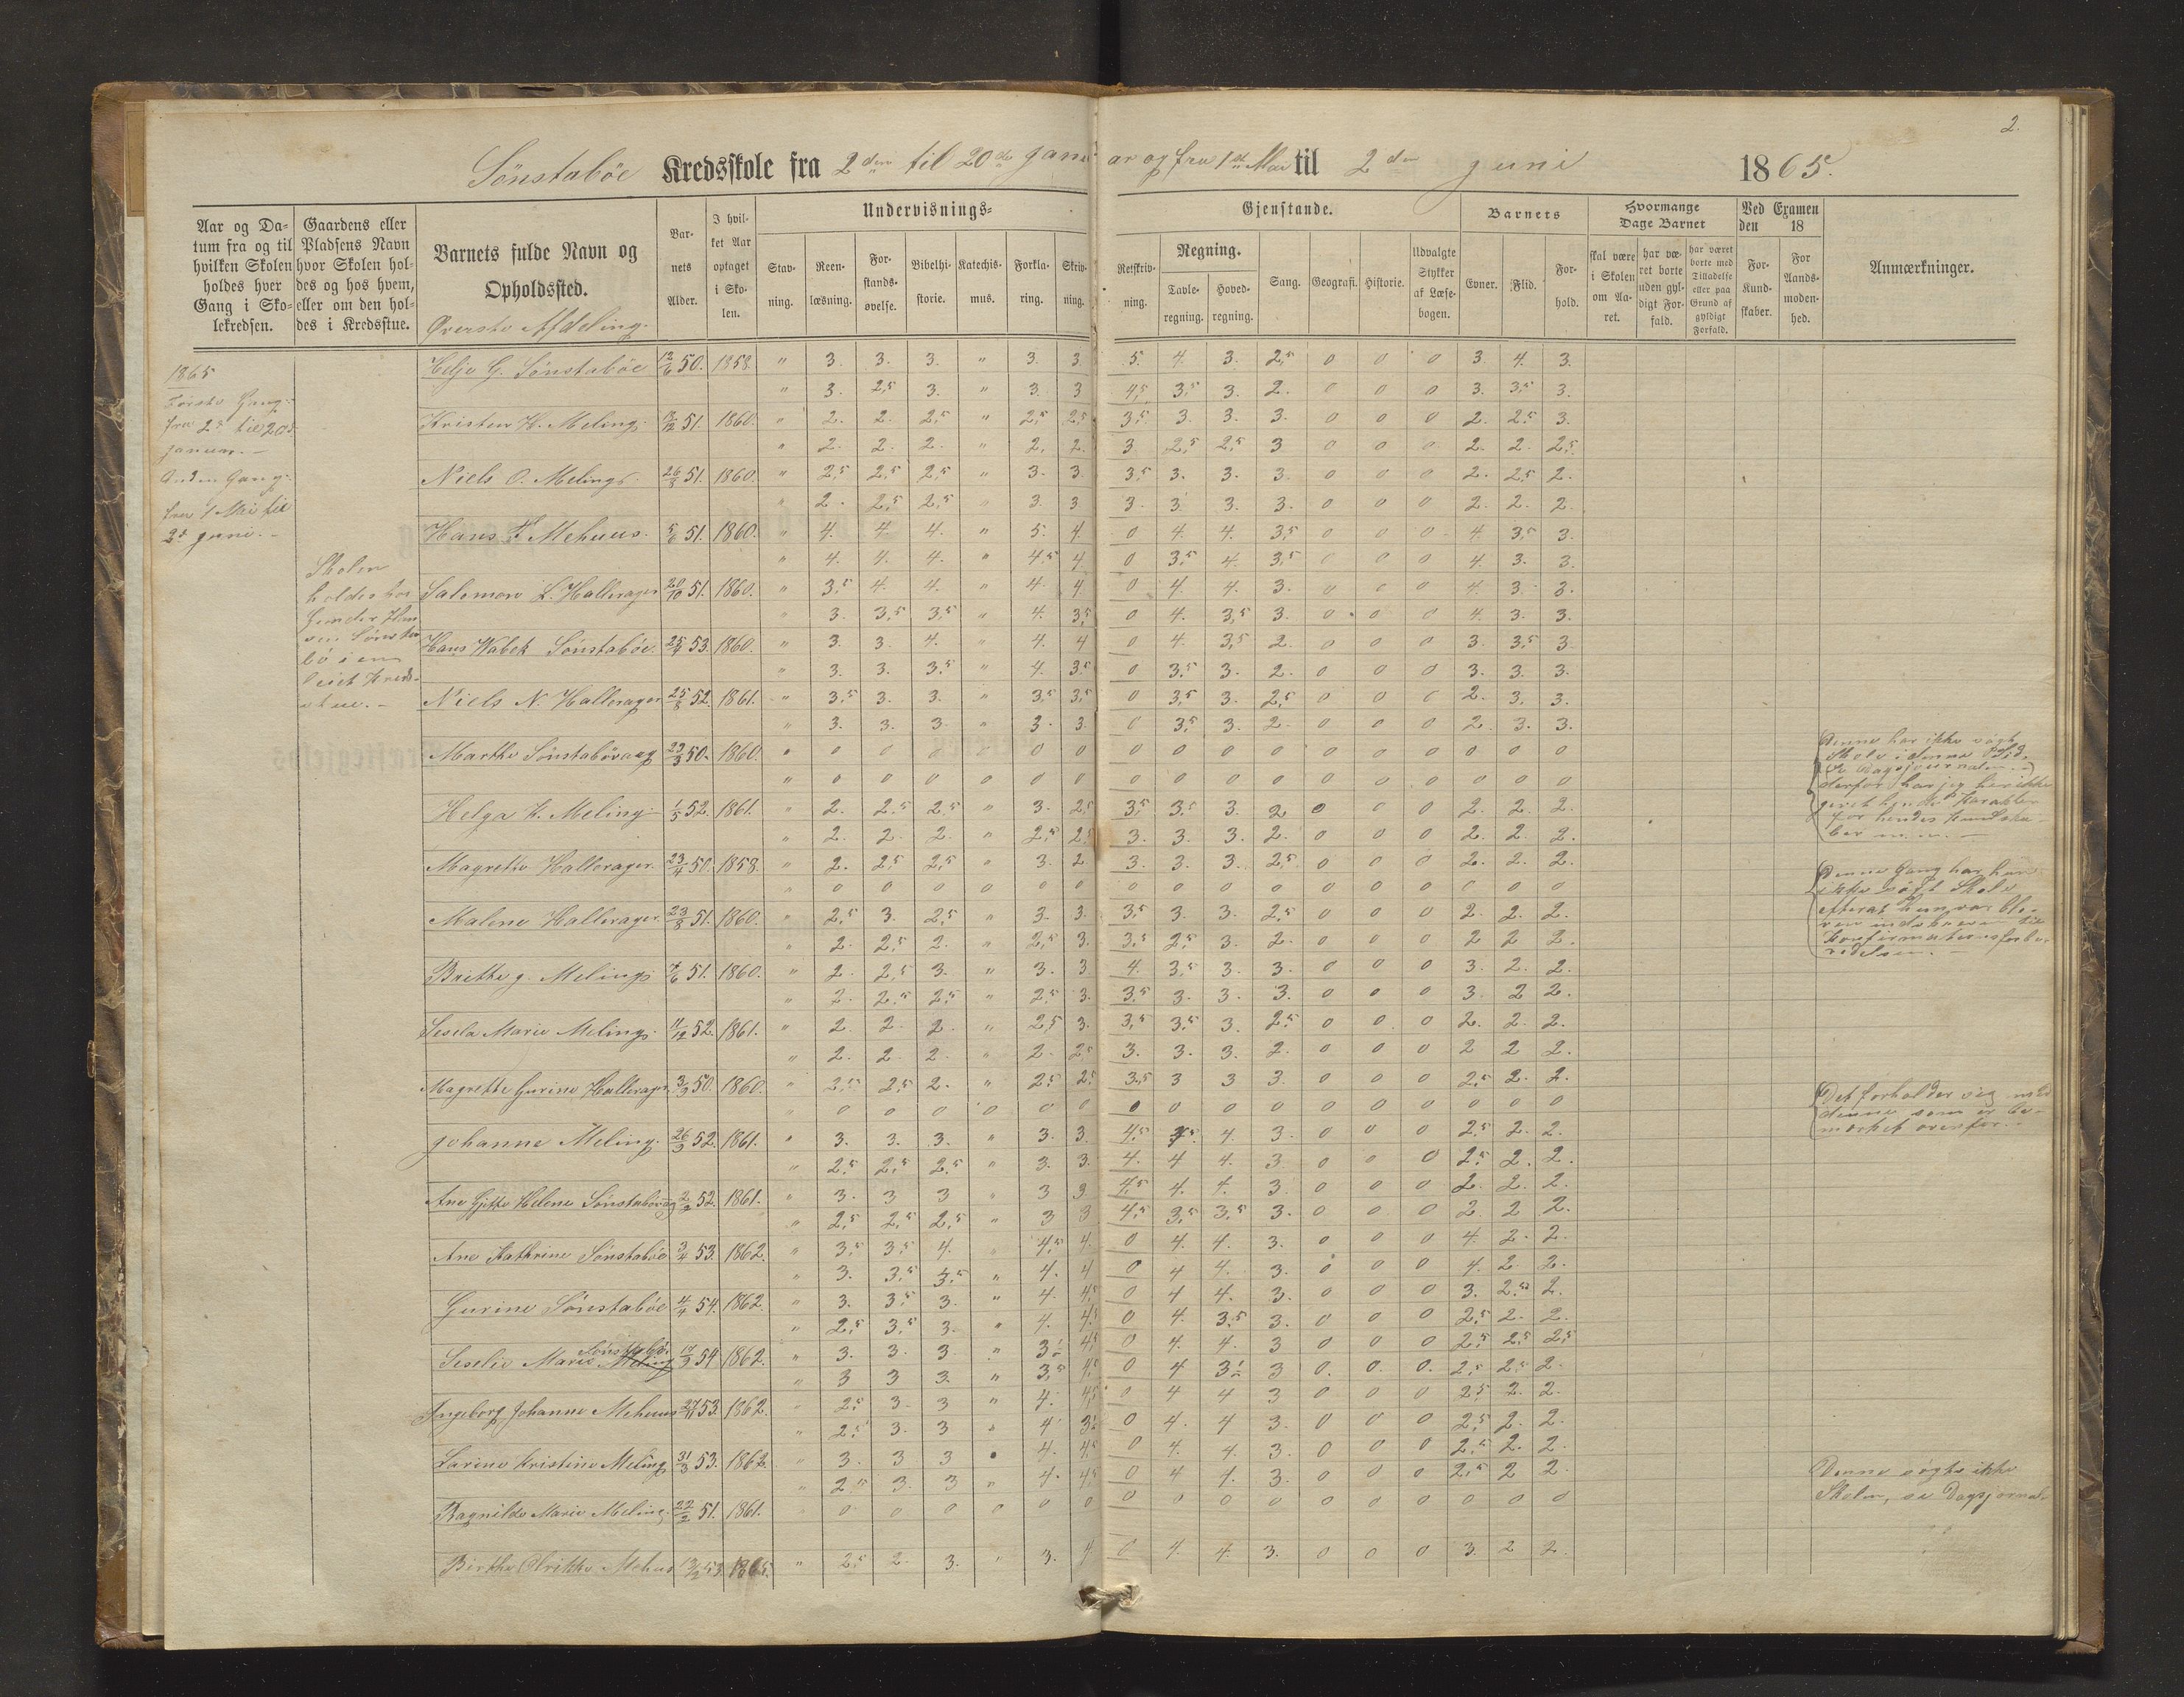 2.
Sönstaböe Kredsskole fra 2den til 20de Januar og fra 1ste Mai til 2den Juni 1865.
Aar og Datum fra og til hvilken Skolen holdes hver Gang i Skolekredsen.
Gaardens eller Pladsens Navn hvor Skolen holdes og hos hvem, eller om den holdes i Kredsstue.
Barnets fulde Navn og Opholdssted.
Barnets Alder.
I hvilket Aar optaget i Skolen.
Undervisnings-Gjenstande.
Stavning. Reenlæsning. Forstandsøvelse. Bibelhistorie. Katechismus. Forklaring. Skrivning. Retskrivning.
Regning. Tavleregning. Hovedregning.
Sang. Geografi. Historie. Udvalgte Stykker af Læsebogen.
Barnets Evner. Flid. Forhold.
Hvormange Dage Barnet
skal være i Skolen om Aaret. har været borte uden gyldigt Forfald. har været borte med Tilladelse eller paa Grund af gyldigt Forfald.
Ved Examen den 18
For Kundskaber. For Aandsmodenhed.
Anmærkninger.
Øverste Afdeling.
1865
Første Gang
fra 2d til 20d
Januar. -
Anden Gang
fra 1 Mai til
2d Juni. -
Skolen
holdes hos
Gunder Han
sen Sönsta
bö i en
leiet Kreds-
stue. -
Helje G. Sönstaböe 12/6 50. 1858. " 3. 3. 3. " 3. 3. 5. 4. 3. 2,5 0 0 0 3. 4. 3.
" 3. 2,5 3. " 3. 3 4,5 3,5 3. 2. 0 0 0 3. 3,5 3.
Kristen H. Meling. 13/12 51. 1860. " 2. 2. 2,5 " 2,5 2,5 3,5 3. 3. 3. 0 0 0 2. 2,5 3.
" 2. 2. 2. " 2. 2. 3 2,5 2,5 3 0 0 0 2. 2. 2,5
Niels O. Meling. 26/8 51. 1860. " 2,5 2,5 2,5 " 3. 3. 3,5 3. 3. 3. 0 0 0 2. 2,5 2.
" 2. 2,5 2,5 " 3. 3 3. 3. 3. 3. 0 0 0 2. 2. 2.
Hans Mehuus. 5/6 51. 1860. " 4. 4. 4. " 5. 4. 0 4. 4. 3,5 0 0 0 4. 3,5 3.
" 4. 4. 4. " 4,5 4 0 3,5 4. 3,5 0 0 0 4. 3. 3.
Salomon L. Hallerager 20/10 51. 1860. " 3,5 4. 4. " 4. 4 0 4. 4. 3. 0 0 0 4. 3. 3.
" 3. 3,5 3,5 " 4. 3,5 0 4. 3,5 3. 0 0 0 4. 3. 3.
Hans Wabek Sönstaböe. 25/4 53. 1860. " 3. 3. 4. " 4. 4 0 4. 3,5 2. 0 0 0 3. 3,5 3.
" 3. 3. 3,5 " 4. 3,5 0 3,5 3. 2. 0 0 0 3. 3. 3.
Niels N. Hallerager 25/8 52. 1861. " 3,5 3. 3. " 3,5 3,5 0 3,5 3. 2,5 0 0 0 2. 3. 3.
" 3. 3. 3. " 3. 3. 0 3,5 3. 2. 0 0 0 2. 3. 3.
Marthe Sönstabövaag 23/3 50. 1860. " 0 0 0 0 0 0 0 0 0 0 0 0 0 0 0
" 0 0 0 0 0 0 0 0 0 0 0 0 0 0 0 0
Denne har ikke søgt
Skole i denne Tid,
derfor har jeg her ikke
givet hende Karakter
for hendes Kundska-
ber m. m. -
Helga K. Meling 1/5 52. 1861. " 2. 2,5 2,5 " 3. 2,5 3,5 3,5 3. 2 0 0 0 2. 2. 2.
" 2. 2. 2. " 2,5 2,5 3. 3. 3. 2. 0 0 0 2. 2. 2.
Magrethe Hallerager. 23/4 50. 1858. " 2. 2,5 2,5 " 3. 2 3. 3. 3. 2,5 0 0 0 2. 2. 2.
" 0 0 0 0 0 0 0 0 0 0 0 0 0 0 0 0
Denne Gang har hun
ikke søgt Skole
efterat hun var ble-
ven indskreven til
Konfirmationsforbe-
redelsen. -
Malene Hallerager 23/8 51. 1860. " 2,5 3. 2,5 " 3. 3. 3,5 3. 3. 2,5 0 0 0 2. 2. 2.
" 2. 2,5 2. " 2,5 3. 3,5 2,5 3. 2. 0 0 0 2 2 2.
Brethe J. Meling. 1860. " 2. 2,5 3. " 3. 3 4. 3,5 3. 3. 0 0 0 3. 2. 2.
" 2. 2,5 2,5 " 2,5 3. 3,5 3. 3. 3. 0 0 0 3. 2 2.
Sesela Marie Meling. 11/12 52. 1861. " 2. 2. 2. " 2,5 3. 3,5 3,5 3. 2,5 0 0 0 2. 2. 2.
" 2. 2. 2. " 2. 2,5 3. 3. 3. 2. 0 0 0 2 2 2.
Magrethe Gurine Hallerager. 3/3 50. 1860. " 2,5 2,5 2. " 2,5 2,5 3,5 3 3 3. 0 0 0 2,5 2. 2.
" 0 0 0 0 0 0 0 0 0 0 0 0 0 0 0 0
Det forholder sig med
denne som er be-
mærket ovenfor. -
Johanne Meling. 26/3 52. 1861. " 3. 3. 3. " 3. 3. 4,5 4. 3. 0 0 0 2,5 2. 2.
" 2,5 2,5 2,5 " 3. 3. 4. 4 4. 3. 0 0 0 2,5 2. 2.
Ane Gjitte Helene Sönstabövaag 52. 1861. " 3. 3 3 " 3 3 4,5 4. 4. 3. 0 0 0 2. 2. 2.
" 2,5 2,5 2,5 " 3 3 4,5 3,5 3,5 3. 0 0 0 2. 2 2.
Ane Kathrine Sönstaböe 3/4 53. 1862. " 3,5 3,5 4. " 4,5 4. 0 4. 4. 3. 0 0 0 4. 2. 2.
" 3. 3,5 3,5 " 4. 4 0 4 4. 3. 0 0 0 4. 2. 2.
Gurine Sönstaböe 4/4 54. 1862. " 3. 3,5 3. " 4. 4,5 0 4 4. 3. 0 0 0 3. 2,5 2.
" 2,5 3,5 3. " 4. 4,5 0 4. 3,5 3. 0 0 0 2,5 2. 2.
Seselie Marie Sönstabö. 17/3 54 1862. " 3. 3. 3. " 3½ 4,5 0 4. 4. 3 0 0 0 2,5 2,5 2,5
" 3 3 3. " 3,5 4,5 0 4 3½ 3 0. 0. 0. 2,5 2,5 2.
Ingeborg Johanne Mehuus 27/11 53. 1862. " 2,5 3. 3 " 4. 4,5 0 4 4 3 0 0 0 2,5 2. 2.
" 2,5 3. 3 " 4 3½ 0 4. 4 3. 0 0 0 2,5 2. 2.
Larine Kristine Meling 31/3 53. 1862. " 3. 3 3 " 4. 4,5 0 4. 4. 3. 0 0 0 2,5 2. 2.
" 2,5 3. 3 " 4. 4,5 0 4 4. 3. 0 0 0 2,5 2 2.
Ragnilde Marie Meling. 22/2 51. 1861. " 0 0 0 0 0 0 0 0 0 0 0 0 0 0 0 0
Denne søgte ikke
Skolen, se Dagsjornal-
Birthe Olrikke Mehus 53. 1865. " 2,5 2. 3. " 3. 4 0 4 4. 3. 0 0 0 3. 2 2.